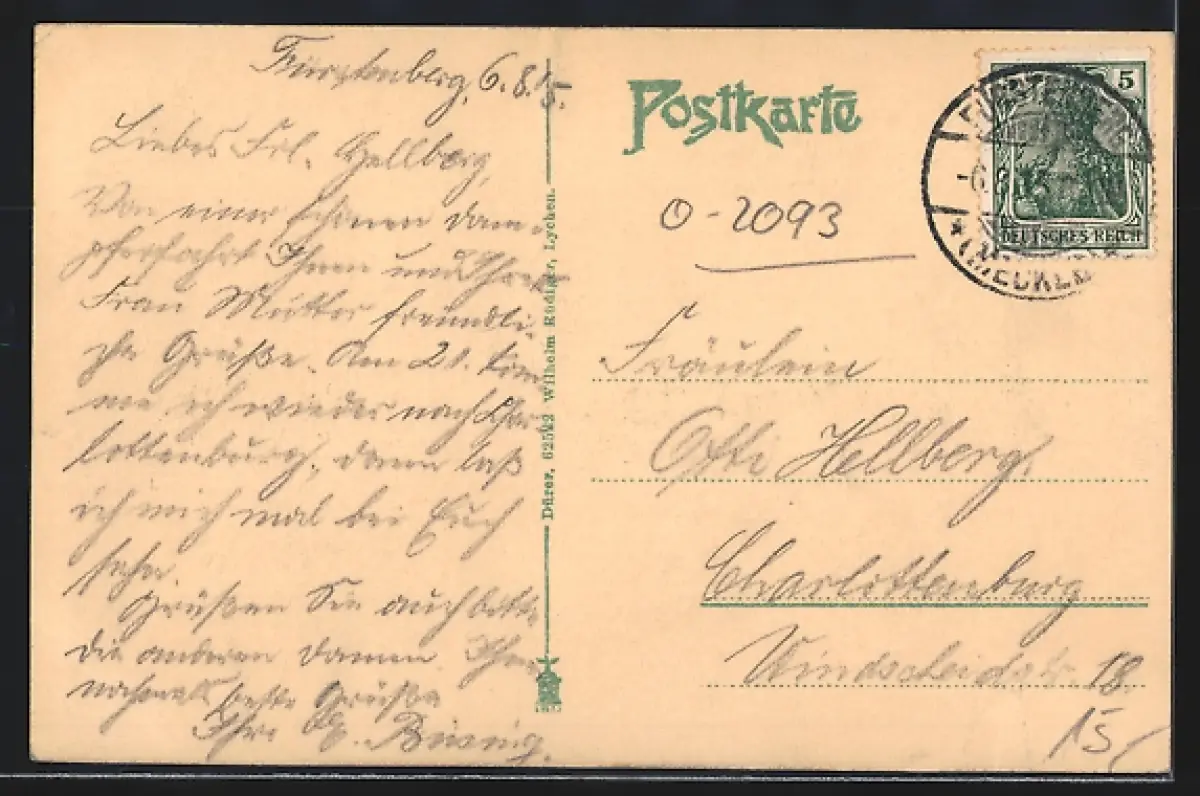 Fürstenberg, 6.8.15.
Liebes Frl. Hellberg,
Von einer schönen Dam-
pferfahrt Ihnen und Ihrer
Frau Mutter freundli-
che Grüße. Am 21. kom
me ich wieder nach Char
lottenburg, dann laß
ich mich mal bei Euch
sehn.
Grüßen Sie auch bitte
die anderen Damen. Ihnen
nochmals beste Grüße
Ihre
Dürer. 62522 Wilhelm Rüdiger, Lychen.
Postkarte
5
DEUTSCHES REICH
0-2093
Fräulein
Hellberg,
Charlottenburg
Windscheidstr. 18.
15,